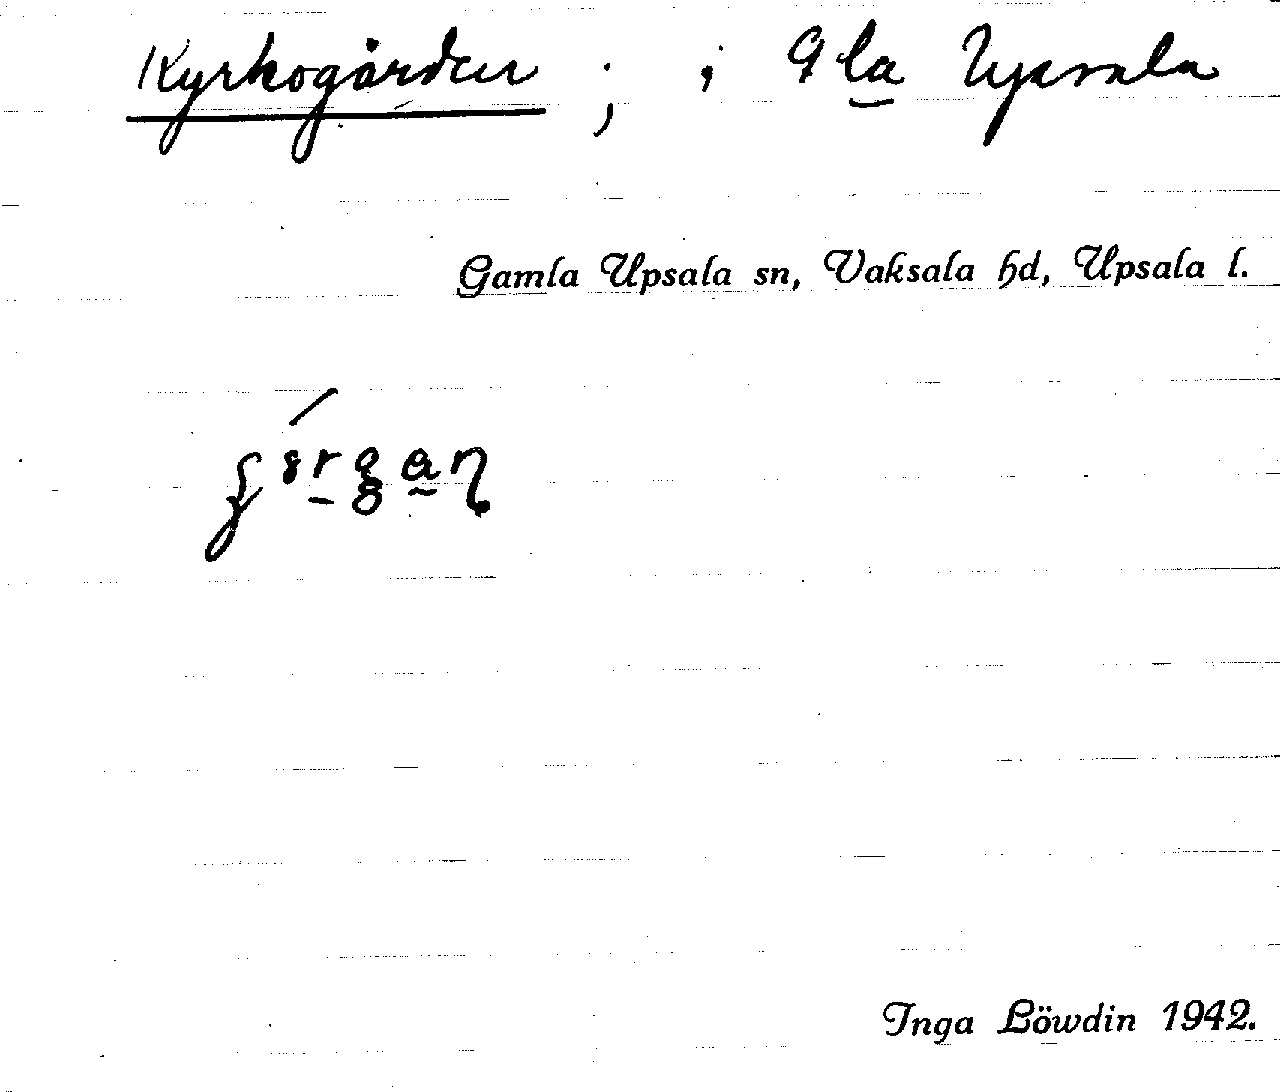 Kyrkogården ; i Gla Upsala
Gamla Upsala sn, Vaksala hd, Upsala l.
Inga Löwdin 1942.